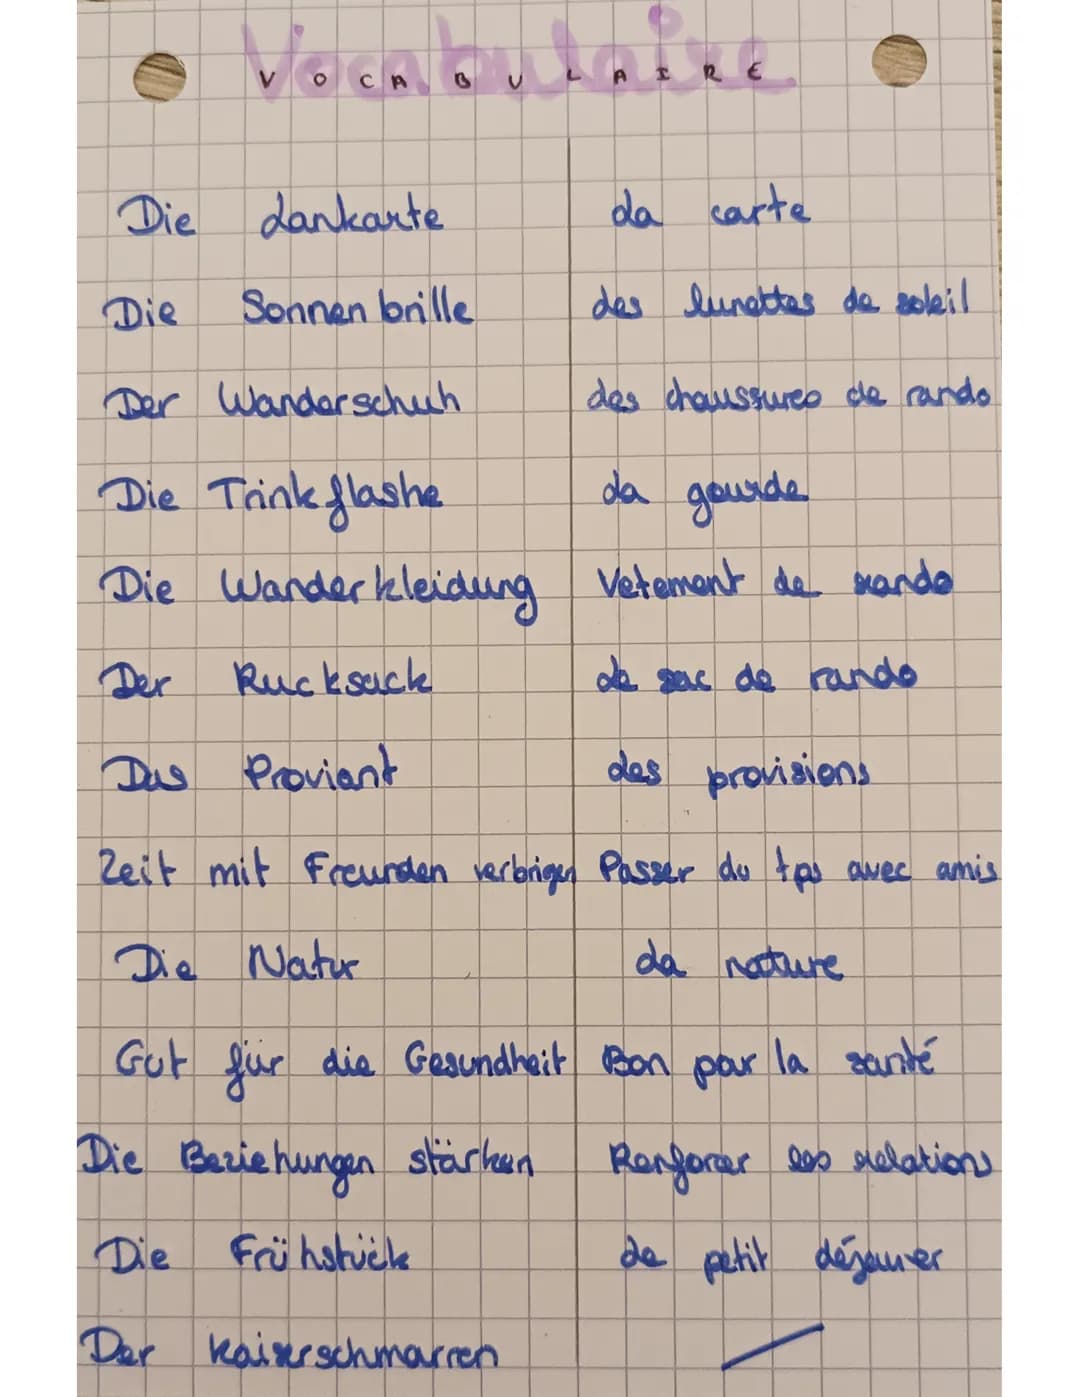 Vocabulaire
VOCABULAIRE
Die Lankarte La carte
Die Sonnenbrille des lunettes de soleil
Der Wanderschuh des chaussures de rando
Die Trinkflashe La gourde
Die Wanderkleidung Vetement de rando
Der Rucksack Le sac de rando
Das Proviant des provisions
Zeit mit Freunden verbrigen Passer du tps avec amis
Die Natur La nature
Gut für die Gesundheit Bon pour la santé
Die Beziehungen stärken Renforcer les relations
Die Frühstück Le petit déjeuner
Der Kaiserschmarren